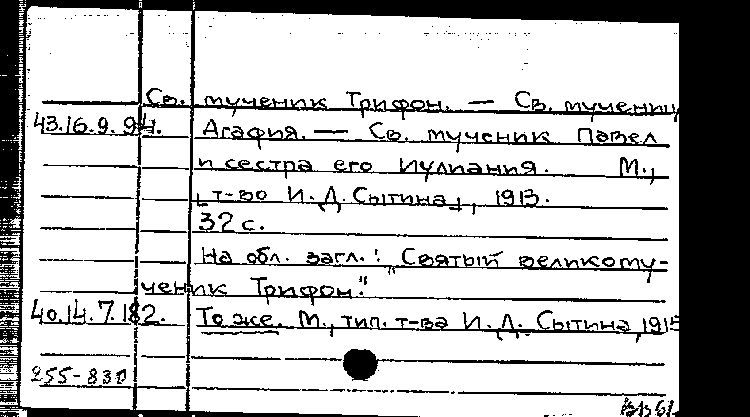 Св. мученик Трифон. — Св. мучениц
43.16.9.94. Агафия. — Св. мученик Павел
и сестра его Иулиания. М.,
[т-во И. Д. Сытина], 1913.
32 с.
На обл. загл.: „Святый великому-
ченик Трифон."
40.14.7.182. То же. М., тип. т-ва И. Д. Сытина, 1915
255-830